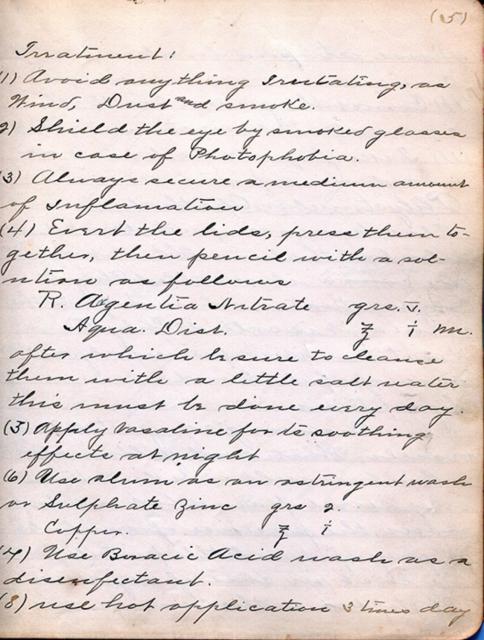 (25)
Treatment:
1) Avoid anything Irritating, as
Wind, Dust and smoke.
2) Shield the eye by smoked glasses
in case of Photophobia.
(3) Always secure a medium amount
of Inflamation
(4) Evert the lids, press them to-
gether, then pencil with a sol-
ution as follows
R. Agentia Nitrate grs. v.
Aqua. Dist. ℥ i m.
after which be sure to cleanse
them with a little salt water
this must be done every day.
(5) Apply vasaline for its soothing
effects at night
(6) Use alum as an astringent wash
or Sulphate Zinc grs 2
Copper. ℥ i
(7) Use Boracic Acid wash as a
disenfectant.
(8) use hot application 3 times day